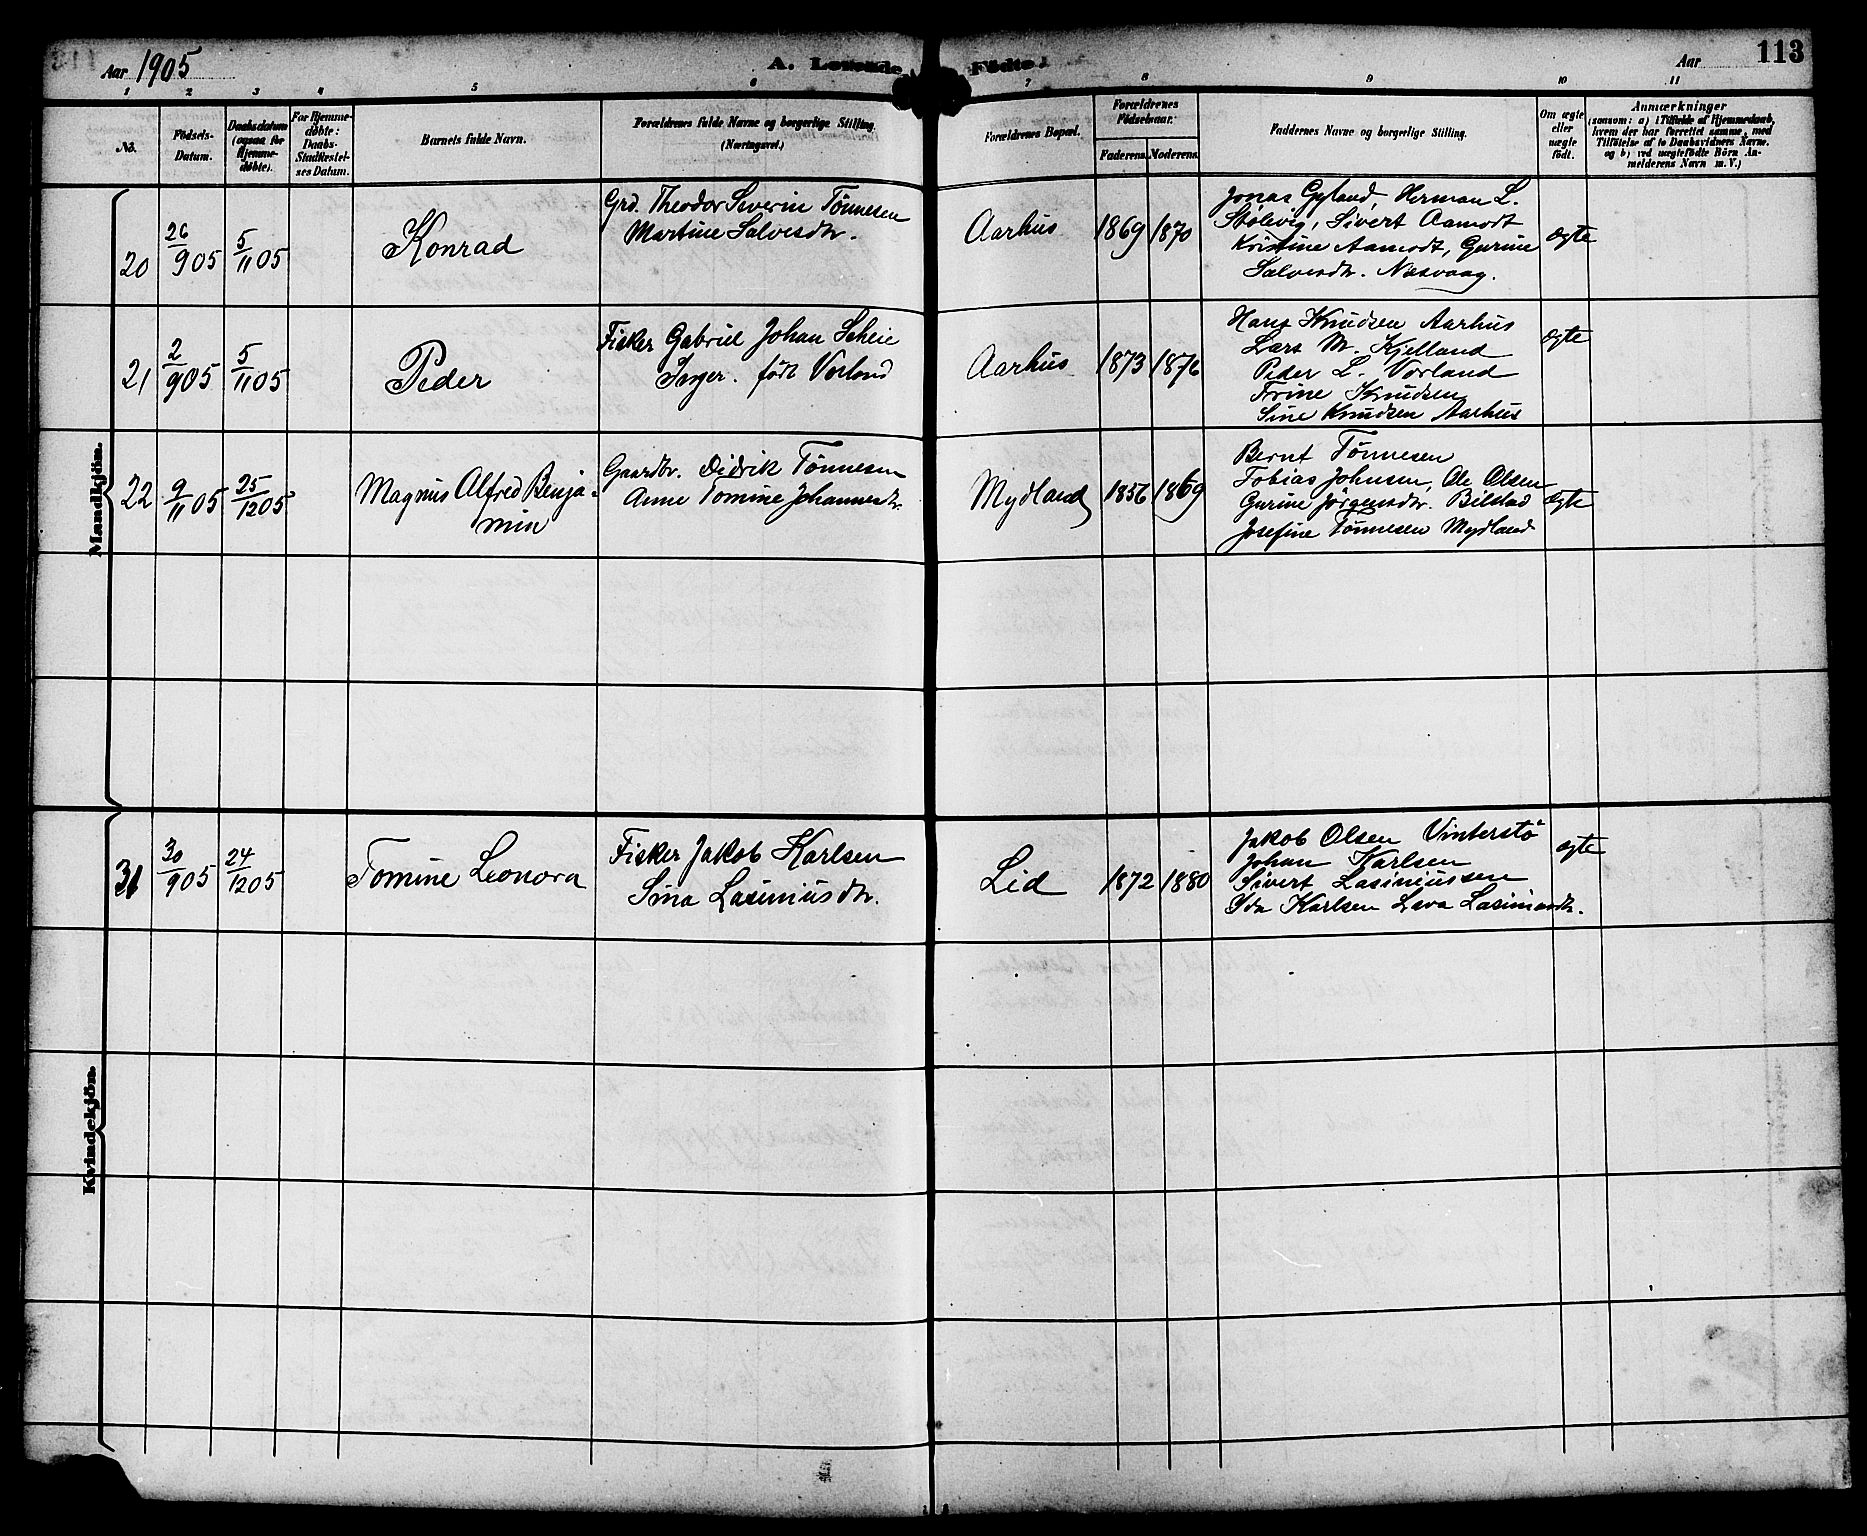 Aar 1905
A. Levende Fødte.
Aar
113
1 2 3 4 5 6 7 8 9 10 11
No.
Fødsels-
Datum.
Daabsdatum
(ogsaa for
Hjemme-
døbte).
For Hjemme-
døbte:
Daabs-
Stadfæstel-
ses Datum.
Barnets fulde Navn.
Forældrenes fulde Navne og borgerlige Stilling.
(Næringsvei.)
Forældrenes Bopæl.
Forældrenes
Fødselsaar:
Faderens. Moderens.
Faddernes Navne og borgerlige Stilling.
Om ægte
eller
uægte
født.
Anmærkninger
(saasom: a) i Tilfælde af Hjemmedaab,
hvem der har forrettet samme, med
Tilføielse af to Daabsvidners Navne.
og b) ved uægtefødte Børn An-
melderens Navn m. V.)
Mandkjøn.
20
26/9 05
5/11 05
Konrad
Grd. Theodor Severin Tønnesen
Martine Salvesdtr.
Aarhus
1869 1870
Jonas Gyland, Herman L.
Stølevig, Sivert Aamodt
Kristine Aamodt, Gurine
Salvesdtr. Næsvaag.
ægte
21
2/9 05
5/11 05
Peder
Fisker Gabriel Johan Scheie
Inger. født Vorland
Aarhus
1873 1876
Hans Knudsen Aarhus
Lars M. Kjelland
Peder L. Vorland
Trine Knudsen
Sine Knudsen Aarhus
ægte
22
9/11 05
25/12 05
Magnus Alfred Benja-
min
Gaardbr. Didrik Tønnesen
Anne Tomine Johannesdtr.
Mydland
1856 1869
Bernt Tønnesen
Tobias Johnsen, Ole Olsen
Gurine Jørgensdtr. Bilstad
Josefine Tønnesen Mydland
ægte
Kvindekjøn.
31
30/9 05
24/12 05
Tomine Leonora
Fisker Jakob Karlsen
Sina Lasiniusdtr.
Lid
1872 1880
Jakob Olsen Vinterstø
Johan Karlsen
Sivert Lasiniussen
Ida Karlsen Lava Lasiniusdtr.
ægte